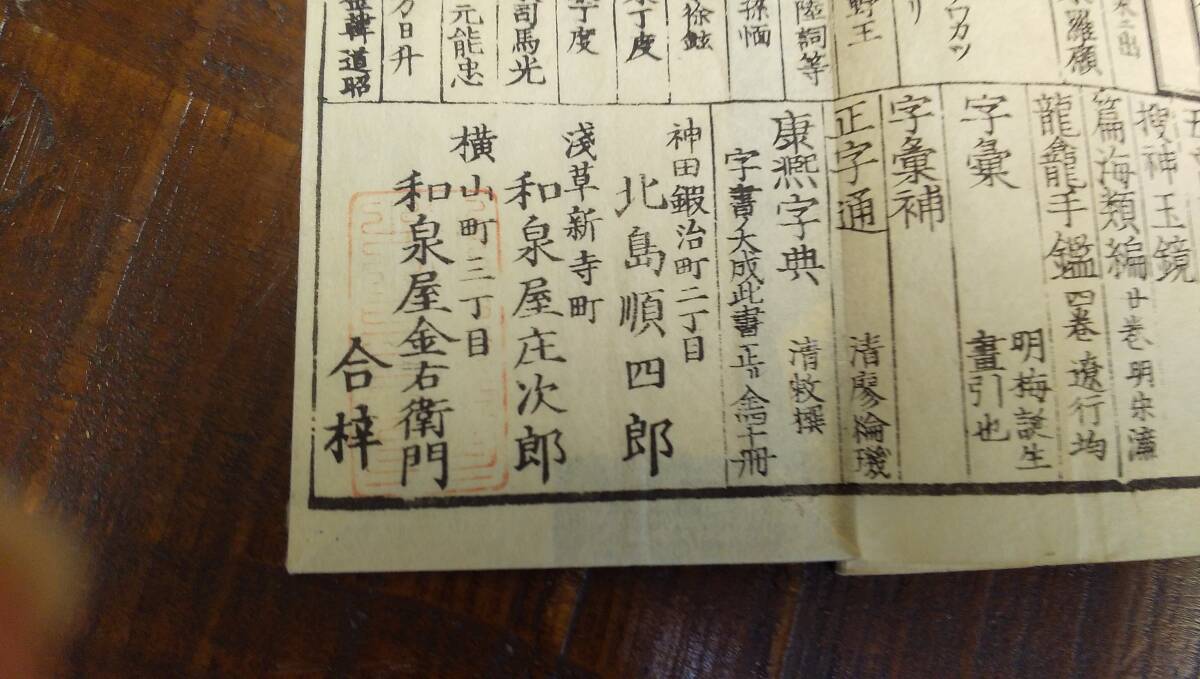 羅願
野王
陸詞等
孫愐
徐鉉
丁度
丁度
司馬光
元能忠
万日升
韓道昭
搜神玉鏡
篇海類編 廿卷 明宋濂
龍龕手鑑 四卷 遼行均
字彙 明梅誕生
畫引也
字彙補
正字通 清廖綸璣
康熙字典 清敕撰
字書ノ大成此書ニ止ル
神田鍜冶町二丁目
北島順四郎
淺草新寺町
和泉屋庄次郎
横山町三丁目
和泉屋金右衛門
合梓